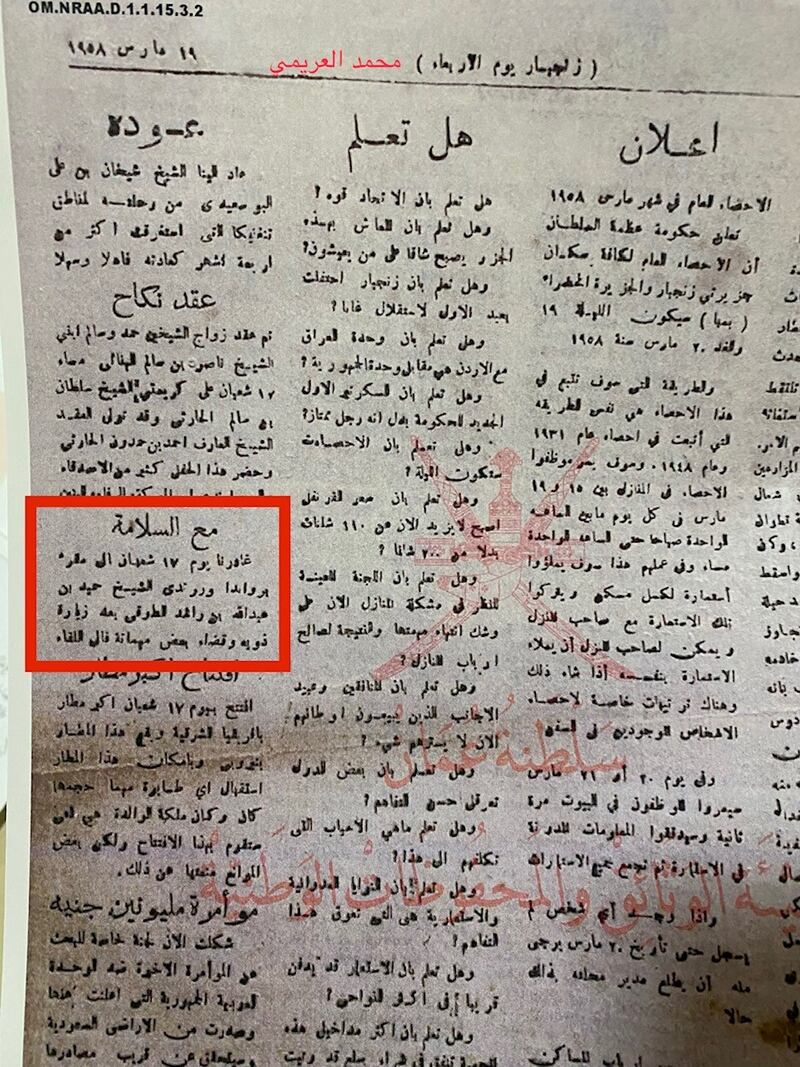 OM.NRAA.D.1.1.15.3.2
( زنجبار يوم الاربعاء )
محمد العريمي
١٩ مارس ١٩٥٨
اعلان
الاحصاء العام في شهر مارس ١٩٥٨
تعلن حكومة عظمة السلطان
أن الاحصاء العام لكافة سكان
جزيرتي زنجبار والجزيرة الخضراء
( بمبا ) سيكون الليلة ١٩
والغد ٢٠ مارس سنة ١٩٥٨
والطريقة التي سوف تتبع في
هذا الاحصاء هي نفس الطريقه
التي أتبعت في احصاء عام ١٩٣١
وعام ١٩٤٨. وسوف يمر موظفوا
الاحصاء في المنازل بين ١٥ و ١٩
مارس في كل يوم مابين الساعه
الواحدة صباحا حتى الساعه الواحدة
مساء وفي عملهم هذا سوف يملؤوا
أستمارة لكل مسكن ويتركوا
تلك الاستمارة مع صاحب المنزل
ويمكن لصاحب المنزل أن يملاء
الاستمارة بنفسه أذا شاء ذلك
وهناك ترتيبات خاصة لاحصاء
الاشخاص الموجودين في السفن
وفي يوم ٢٠ أو ٢١ مارس
سيمروا الموظفون في البيوت مرة
ثانية وسيدققوا المعلومات المدونة
في الاستمارة ثم تجمع جميع الاستمارات
واذا وجد أي شخص لم
يسجل حتى تأريخ ٢٠ مارس يرجى
منه أن يطلع مدير محله بذلك
حالا
هل تعلم
هل تعلم بان الاتحاد قوه ؟
وهل تعلم بان المعاش بهذه
الجزر يصبح شاقا على من يعيشون؟
وهل تعلم بان زنجبار احتفلت
بعيد الاول لاستقلال غانا ؟
وهل تعلم بان وحدة العراق
مع الاردن هي مقابل وحدة الجمهورية ؟
وهل تعلم بان السكرتير الاول
الجديد للحكومة يدل انه رجل ممتاز؟
وهل تعلم بان الاحصاءات
ستكون الليلة ؟
وهل تعلم بان سعر القرنفل
اصبح لا يزيد الان عن ١١٠ شلنات
بدلا من ٢٠٠ شلنا ؟
وهل تعلم بان اللجنة المعينة
للنظر في مشكلة المنازل الان على
وشك انتهاء مهمتها والنتيجة لصالح
ارباب المنازل ؟
وهل تعلم بان المنافقين وعبيد
الاجانب الذين يبيعون اوطانهم
الان لا يسترهم شيء ؟
وهل تعلم بان بعض الدول
تعرقل حسن التفاهم ؟
وهل تعلم ماهي الاسباب التي
تكلفهم الى هذا ؟
وهل تعلم بان النوايا العدوانية
والاستعمارية هي التي تعوق هذا
التفاهم ؟
وهل تعلم بان الاستعمار قد يدفن
قريبا في اكثر النواحي ؟
وهل تعلم بان اكثر مداخيل هذه
عودة
عاد الينا الشيخ شيخان بن علي
البوسعيدي من رحلته لمناطق
تنغنيكا التي استغرقت اكثر من
اربعة اشهر كعادته فاهلا وسهلا
عقد نكاح
تم عقد زواج الشيخين حمد وسالم ابني
الشيخ ناصر بن سالم الهنائي مساء
١٧ شعبان على كريمتي الشيخ سلطان
بن سالم الحارثي وقد تولى العقد
الشيخ العارف احمد بن حمدون الحارثي
وحضر هذا الحفل كثير من الاصدقاء
مع السلامة
غادرنا يوم ١٧ شعبان الى مقره
بروندا وروندي الشيخ حميد بن
عبدالله بن راشد الطوقي بعد زيارة
ذويه وقضاء بعض مهماته فالى اللقاء
افتتاح اكبر مطار
افتتح بيوم ١٧ شعبان اكبر مطار
بافريقيا الشرقية وبقي هذا المطار
بنيروبي وبامكان هذا المطار
استقبال اي طيارة مهما حجمها
كان وكان ملكة الوالدة هي التي
ستقوم بهذا الافتتاح ولكن بعض
الموانع منعتها عن ذلك.
مؤامرة مليونين جنيه
شكلت الان لجنة خاصة للبحث
عن المؤامرة الاخيرة ضد الوحدة
العربية الجمهورية التي اعلنت عنها
وصدرت من الاراضى السعودية
وسيلحق عن قريب مصادرها
سلطنة عمان
هيئة الوثائق والمحفوظات الوطنية